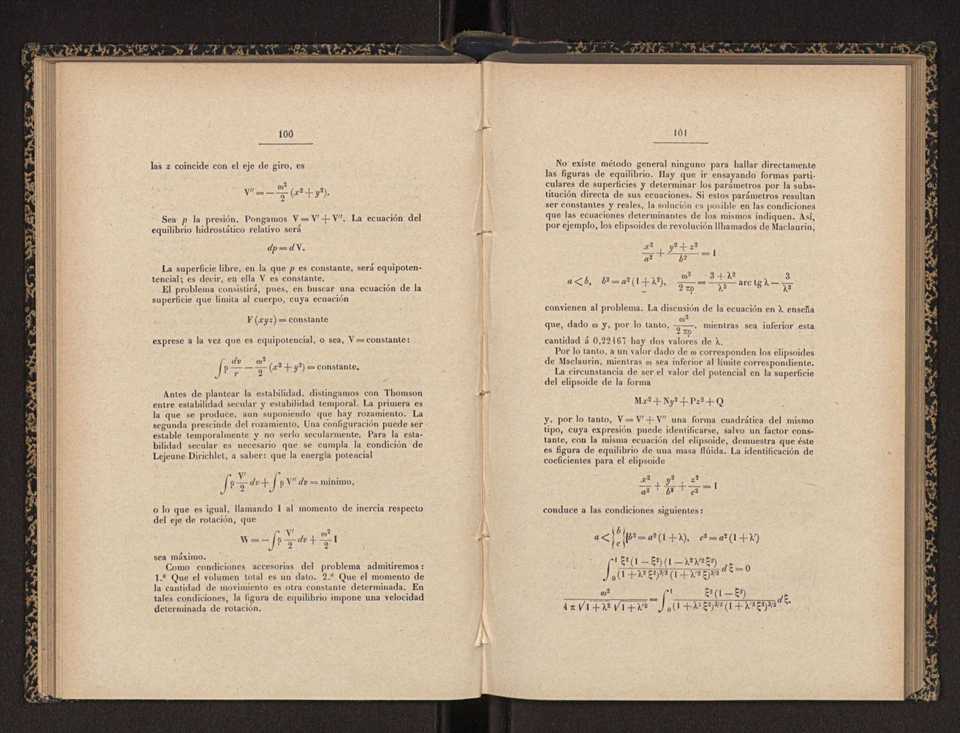 100
las z coincide con el eje de giro, es
V'' = — ω²/2 (x² + y²).
Sea p la presión. Pongamos V = V' + V''. La ecuación del
equilibrio hidrostático relativo será
dp = d V.
La superficie libre, en la que p es constante, será equipoten-
tencial; es decir, en ella V es constante.
El problema consistirá, pues, en buscar una ecuación de la
superficie que limita al cuerpo, cuya ecuación
F (xyz) = constante
exprese a la vez que es equipotencial, o sea, V = constante:
∫ρ dv/r — ω²/2 (x² + y²) = constante.
Antes de plantear la estabilidad, distingamos con Thomson
entre estabilidad secular y estabilidad temporal. La primera es
la que se produce, aun suponiendo que hay rozamiento. La
segunda prescinde del rozamiento. Una configuración puede ser
estable temporalmente y no serlo secularmente. Para la esta-
bilidad secular es necesario que se cumpla la condición de
Lejeune Dirichlet, a saber: que la energía potencial
∫ρ V'/2 dv + ∫ρ V'' dv = mínimo,
o lo que es igual, llamando I al momento de inercia respecto
del eje de rotación, que
W = — ∫ρ V'/2 dv + ω²/2 I
sea máximo.
Como condiciones accesorias del problema admitiremos:
1.ª Que el volumen total es un dato. 2.ª Que el momento de
la cantidad de movimiento es otra constante determinada. En
tales condiciones, la figura de equilibrio impone una velocidad
determinada de rotación.
101
No existe método general ninguno para hallar directamente
las figuras de equilibrio. Hay que ir ensayando formas parti-
culares de superficies y determinar los parámetros por la subs-
titución directa de sus ecuaciones. Si estos parámetros resultan
ser constantes y reales, la solución es posible en las condiciones
que las ecuaciones determinantes de los mismos indiquen. Así,
por ejemplo, los elipsoides de revolución llhamados de Maclaurin,
x²/a² + (y² + z²)/b² = 1
a < b, b² = a² (1 + λ²), ω²/2 πρ = (3 + λ²)/λ³ arc tg λ — 3/λ²
convienen al problema. La discusión de la ecuación en λ enseña
que, dado ω y, por lo tanto, ω²/2 πρ, mientras sea inferior esta
cantidad á 0,22467 hay dos valores de λ.
Por lo tanto, a un valor dado de ω corresponden los elipsoides
de Maclaurin, mientras ω sea inferior al límite correspondiente.
La circunstancia de ser el valor del potencial en la superficie
del elipsoide de la forma
Mx² + Ny² + Pz² + Q
y, por lo tanto, V = V' + V'' una forma cuadrática del mismo
tipo, cuya expresión puede identificarse, salvo un factor cons-
tante, con la misma ecuación del elipsoide, demuestra que éste
es figura de equilibrio de una masa flúida. La identificación de
coeficientes para el elipsoide
x²/a² + y²/b² + z²/c² = 1
conduce a las condiciones siguientes:
a < {b c} b² = a² (1 + λ), c² = a² (1 + λ')
∫₀¹ ξ² (1 — ξ²) (1 — λ²λ'²ξ²)/(1 + λ² ξ²)³/² (1 + λ'² ξ²)³/² d ξ = 0
ω²/4 π √1 + λ² √1 + λ'² = ∫₀¹ ξ² (1 — ξ²)/(1 + λ² ξ²)³/² (1 + λ'² ξ²)³/² d ξ.